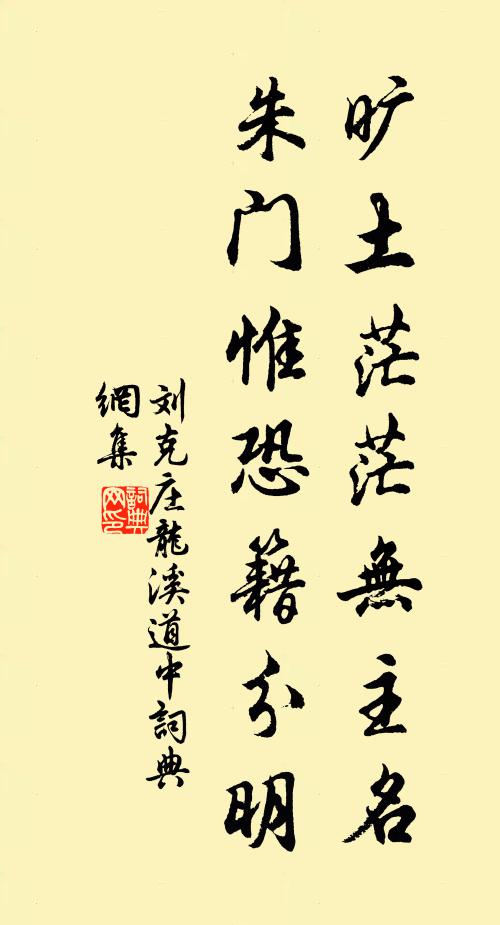 旷土茫茫無主名
朱门惟恐籍分明
刘克庄龍溪道中詞典
網集
詞典
网印